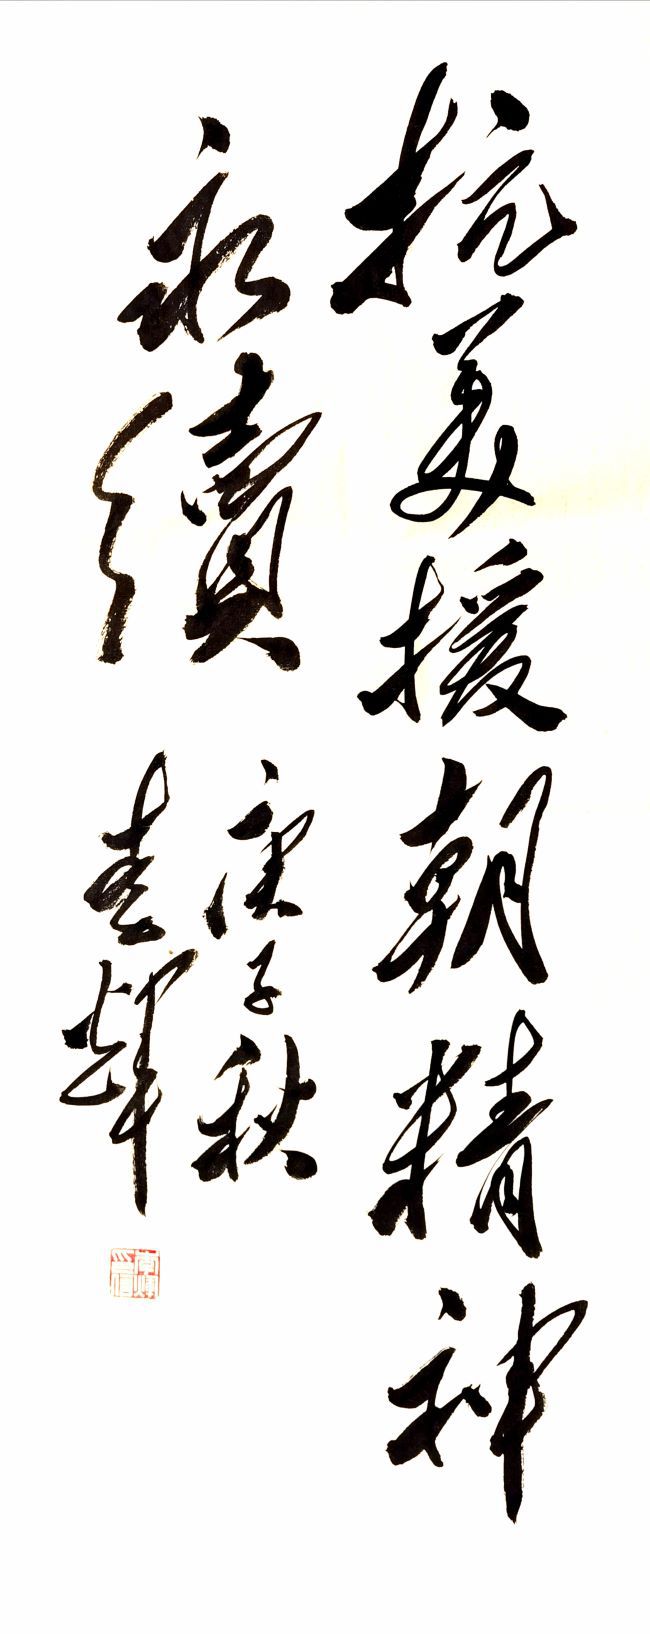 抗美援朝精神
永續
庚子秋
輝